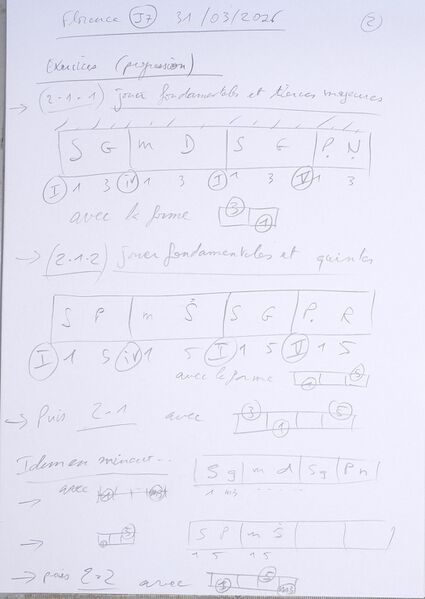 Florence J7 31/03/2026 2
Exercices (progression)
→ (2-1-1) jouer fondamentales et tierces majeures
S G | m D | S G | P. N.
I 1 3 iv 1 3 I 1 3 V 1 3
avec la forme 3 1
→ (2-1-2) jouer fondamentales et quintes
S P | m Ṡ | S G | P. R
I 1 5 iv 1 5 I 1 5 V 1 5
avec la forme 1 5
→ Puis 2-1 avec 3 1 5
Idem en mineur...
S g | m d | S g | P n
1 m3
→ avec
→ 5
S P | m Ṡ
1 5 1 5
→ puis 2-2 avec 1 5 m3